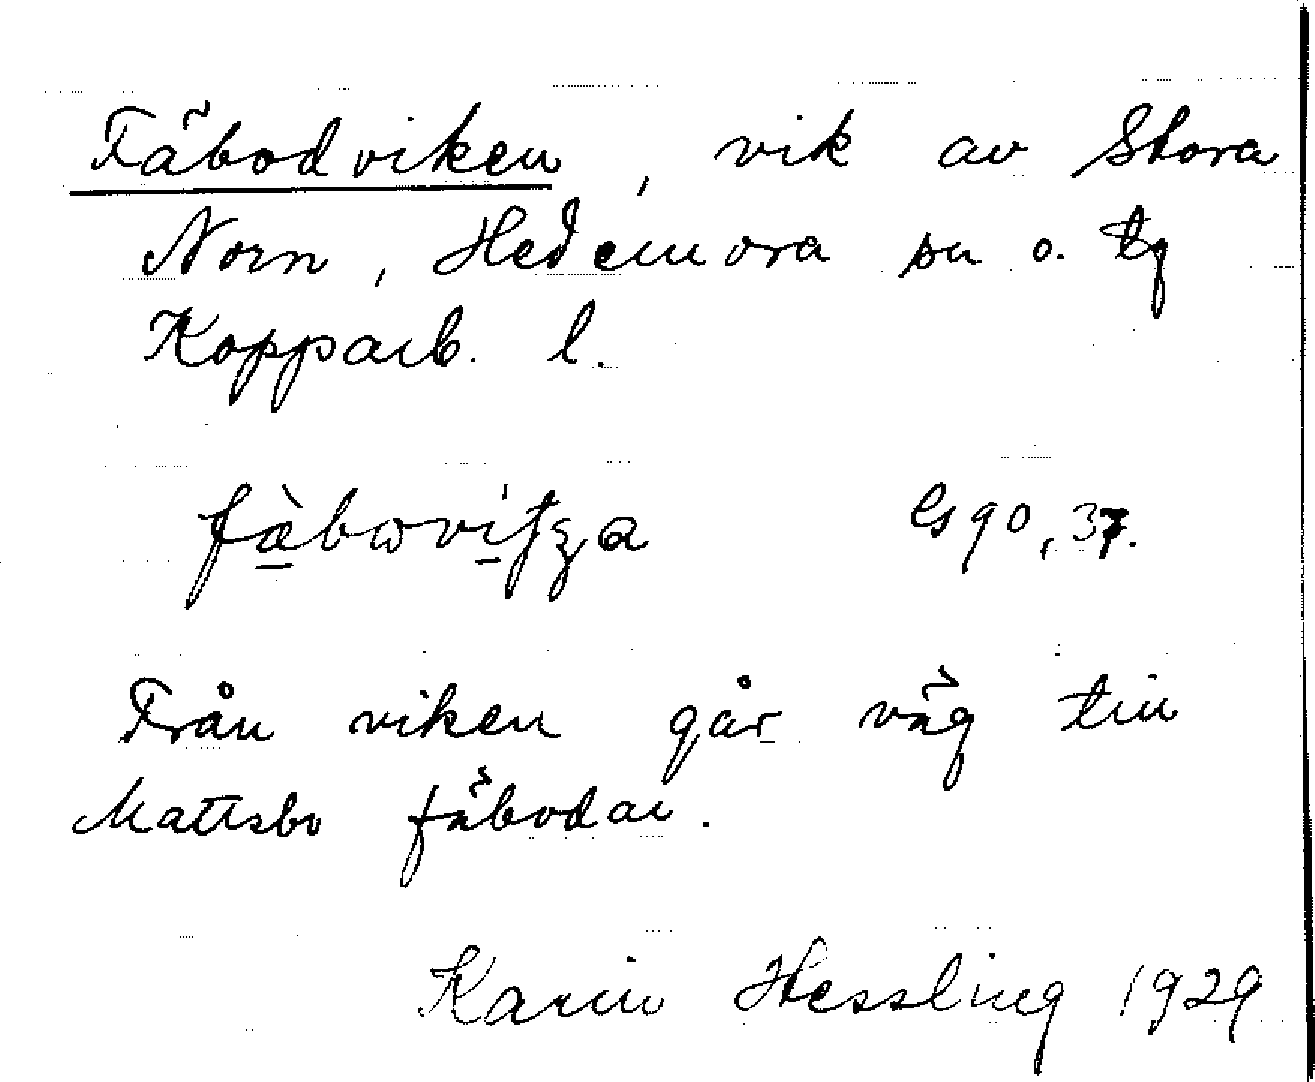 Fäbodviken, vik av Stora
Norn, Hedemora sn o. tg
Kopparb. l.
Gs 90, 37.
Från viken går väg till
Mattsbo fäbodar.
Karin Hessling 1929